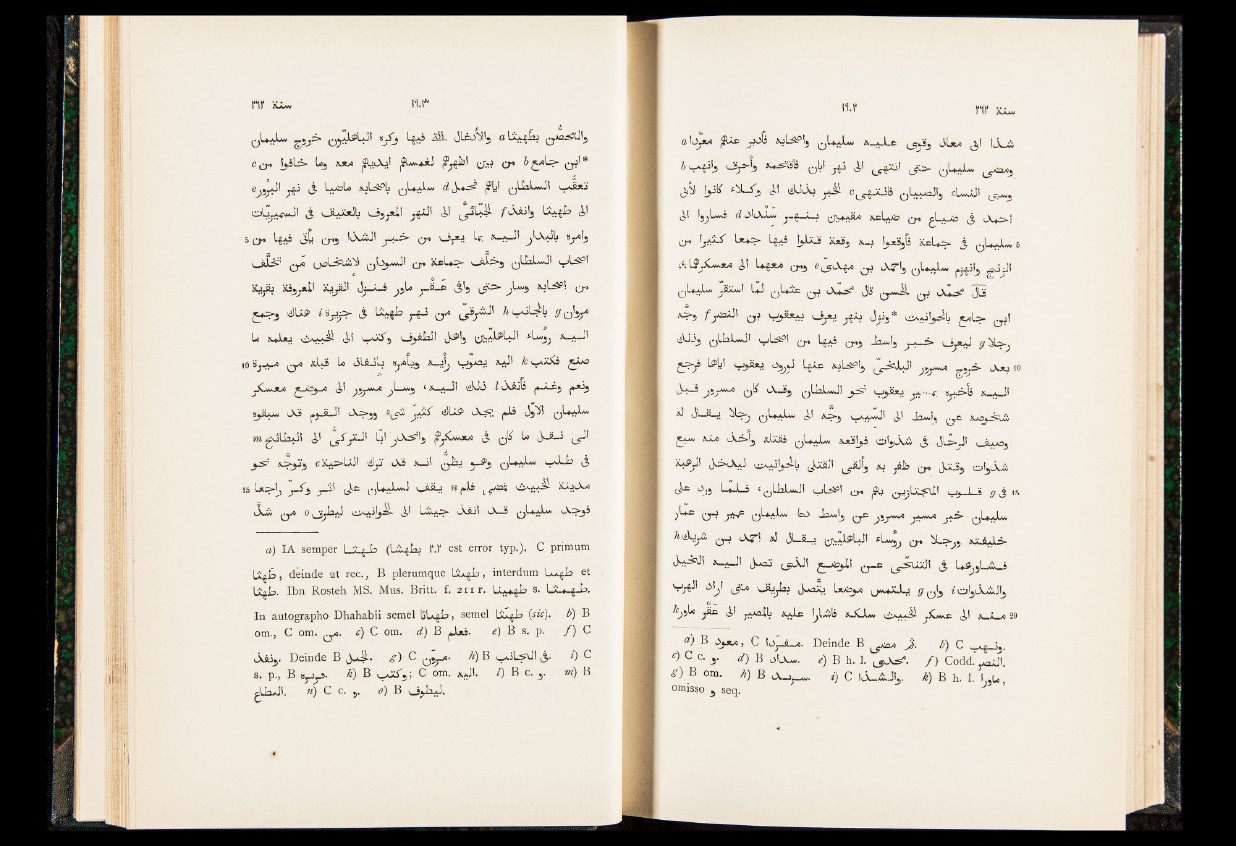 سنة ٢٦٢ ١٩٠٢
شذا الى معان وقوى عليه سليمان واصحابه فأدبر عنهم معرّدا a
ومضى سليمان حتى انتهى الى نهر ابان فاقتحمه وأحرق وانهب b
وسبى النساء والصبيان فانتهى c الخبر بذلك الى وكلاء كانوا لأبى
احمد فى ضياع من ضياعه مقيمين بنهر سنداد d فساروا الى
5 سليمان فى جماعة فأوقعوا به وقعة قتلوا فيها جمعا كثيرا من
الزنج وانهزم سليمان واحمد بن مهدى e ومن معهما الى معسكرهما،
قال محمّد بن الحسن قال محمّد بن عثمان لمّا استقرّ سليمان
ابن جامع بالحوانيت *ونزل بنهر يعرف بيعقوب بن النضر f وجّه
رجلا g ليعرف خبر واسط ومن فيها من اصحاب السلطان وذلك
10 بعد خروج مسرور البلخىّ واصحابه عنها لورود يعقوب اياها فرجع
اليه فأخبره بمسير يعقوب نحو السلطان وقد كان مسرور قبل
شخوصه عن واسط الى السيب وجّه الى سليمان رجلا يقال له
وصيف الرحّال فى شذوات فواقعه سليمان فقتله وأخذ منه سبع
شذوات وقتل من ظفر به وألقى القتلى بالحوانيت ليدخل الرهبة
15 فى g قلوب المجتازين بهم من اصحاب السلطان، فلمّا ورد على
سليمان خبر مسير مسرور عن واسط دعا سليمان عمير بن عمّار
خليفته ورجلا من رؤساء الباهليّين يقال له احمد بن شريك h
فشاورهما فى التنحّى عن الموضع الذى تصل اليه الخيل
والشذوات i وان g يلتمس موضعا يتّصل بطريق متى اراد الهرب
20 منه الى عسكر الخبيث سلكه فأشارا عليه بالمصير الى عقر ماور k
a) B معود, C. Deinde B مضى. b) C ونهب.
c) C c. و. d) B سداد. e) B h. l. محدى. f) Codd. النصر.
g) B om. h) B سرىد. i) C والشذا. k) B h. l. ماورا,
omisso و seq.
سنة ٢٦٢ ١٩٠٣
والتحصّن بطهيثا a والأدغال التى فيها وكره الباهليّون خروج سليمان
*ابن جامع b من بين اظهرهم لغمسهم ايديهم معه وما خافوا من c
تعقّب السلطان اياهم فحمل d سليمان باصحابه ماضيا فى نهر البرور e
الى طهيثا وانفذ f الجبّائىّ الى النهر المعروف بالعتيق فى السميريّات
5 وامره بالبدار اليه بما يعرف من خبر الشذا ومن يأتى فيها من
اصحاب السلطان وخلّف جماعة من السودان لاشخاص من تخلّف
من اصحابه وسار حتى وافى عقر ماور فنزل القرية المعروفة بقرية
مروان g بالجانب h الشرقى من نهر طهيثا فى جزيرة i هناك وجمع
اليه رؤساء الباهليّين واهل الطفوف وكتب الى الخبيث يعلمه ما
10 صنع فكتب k اليه يصوّب رأيه ويأمره بانفاذ ما قبله من ميرة
ونعم وغنم فأنفذ l ذلك اليه، وسار مسرور الى موضع معسكر
سليمان الاوّل فلم يجد هناك كثير شىء ووجد القوم قد سبقوه
الى نقل ما كان فى معسكرهم وانحدر ابّا التركى الى البطائح m
فى طلب سليمان وهو يظنّ انه قد ترك الناحية c وتوجّه نحو
15 مدينة الخبيث فمضى فلم n يقف لسليمان على اثر وكرّ راجعا
فوجد سليمان قد انفذ جيشا الى الحوانيت ليطرق o من شذّ
a) IA semper طهثا (بطهثا ٢٠٢ est error typ.). C primum
طهثا, deinde ut rec., B plerumque طهيثا, interdum et
Ibn Rosteh MS. Mus. Britt. f. 211 r. s.
In autographo Dhahabii semel, semel (sic). b) B
om., C om. من. c) C om. d) B فعلم. e) B s. p. f) C
ونفذ. Deinde B الجبل. g) C مرون. h) B فى الجانب. i) C
s. p., B. k) B وكتب; C om. اليه. l) B c. و. m) B
المطاع. n) C c. و. o) B ليطوف.